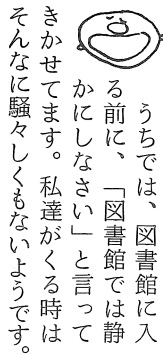 うちでは、図書館に入
る前に、「図書館では静
かにしなさい」と言って
きかせてます。私達がくる時は
そんなに騒々しくもないようです。